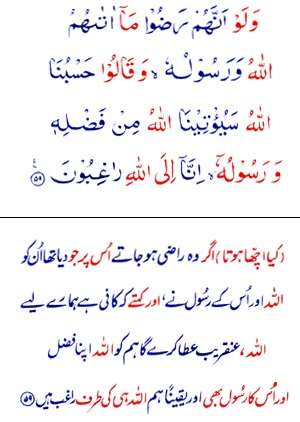 وَلَوْ اَنَّهُمْ رَضُوْا مَاۤ اٰتٰىهُمُ
اللهُ وَرَسُوْلُهٗ ۙ وَقَالُوْا حَسْبُنَا
اللهُ سَيُؤْتِيْنَا اللهُ مِنْ فَضْلِهٖ
وَرَسُوْلُهٗۤ ۙ اِنَّاۤ اِلَى اللهِ رٰغِبُوْنَ ﴿۵۹﴾
(کیا اچّھا ہوتا) اگر وہ راضی ہو جاتے اُس پر جو دیا تھا اُن کو
اللہ اور اُس کے رسُول نے، اور کہتے کہ کافی ہے ہمارے لیے
اللہ، عنقریب عطا کرے گا ہم کو اللہ اپنا فضل
اور اُس کا رسُول بھی اور یقیناً ہم اللہ ہی کی طرف راغب ہیں ﴿۵۹﴾